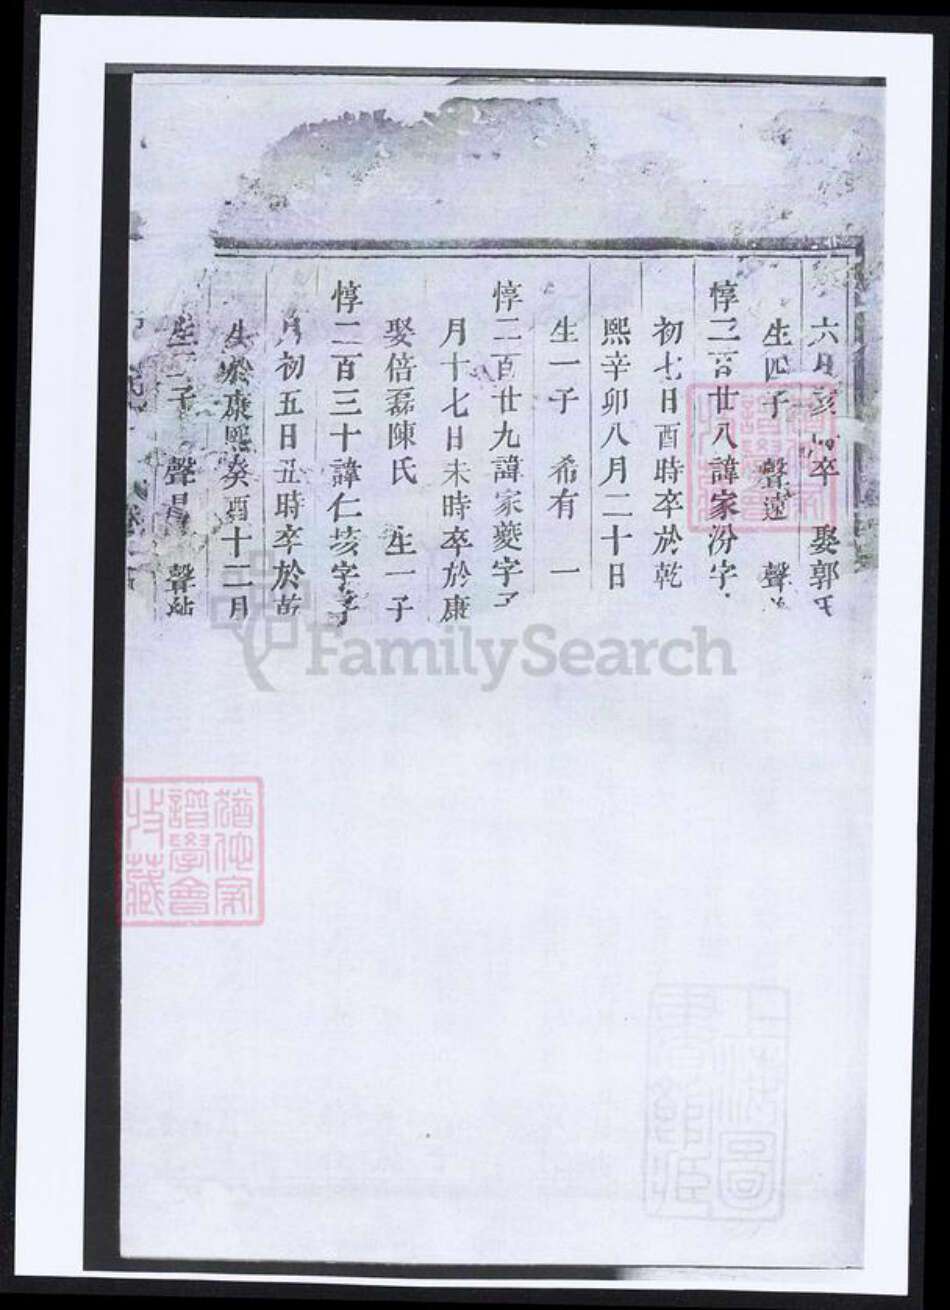 六月 卒 娶郭氏
生四子 聲遠 聲
惇二百廿八諱家汾字
初七日酉時卒於乾
熙辛卯八月二十日
生一子 希有 一
惇二百廿九諱家夔字
月十七日未時卒於康
娶倍磊陳氏 生一子
惇二百三十諱仁荄字子
月初五日丑時卒於乾
生於康熙癸酉十二月
生二子 聲昌 聲
FamilySearch
譜學會
收藏